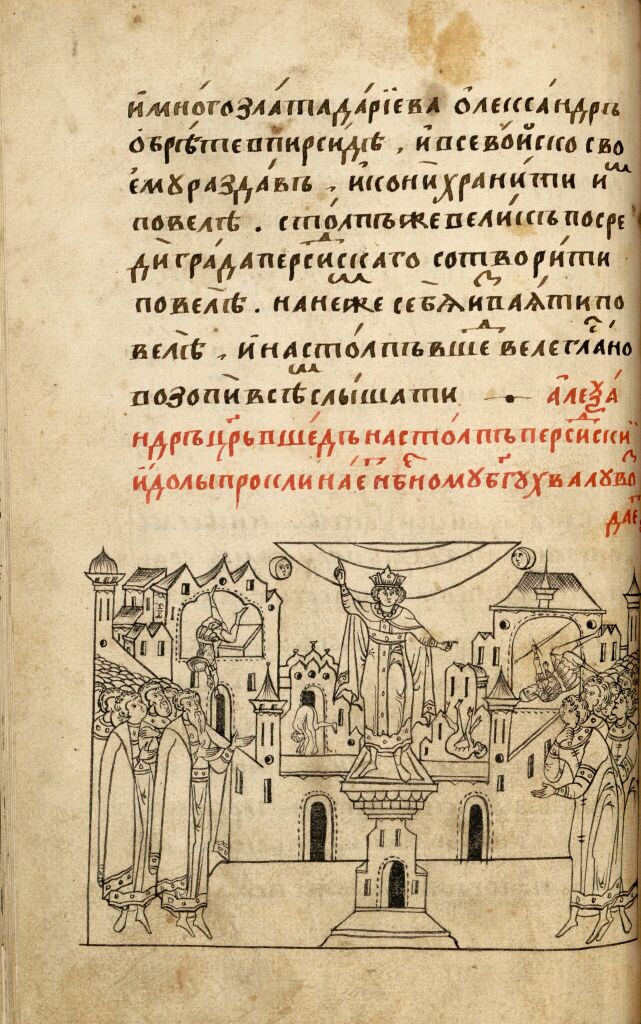 и҆ мно́го зла́та да́рїева ѻ҆леѯа́ндръ
ѻ҆брѣ́те в пирси́дѣ , и҆ все во́йско сво
ему разда́въ , и҆ ко́ни храни́ти и҆м
повелѣ . сто́лпъ же вели́къ посре
ди́ гра́да перси́скаго сотвори́ти
повелѣ . на неже себѧ̀ и ваѧ́ти по
велѣ , и҆ на сто́лпъ вше велегла́но
возопи́ всѣм слы́шати алеѯа́
ндръ црь вшедъ на сто́лпъ перси́скиї
и҆долы проклинае нбному бгу хвалу во
дае